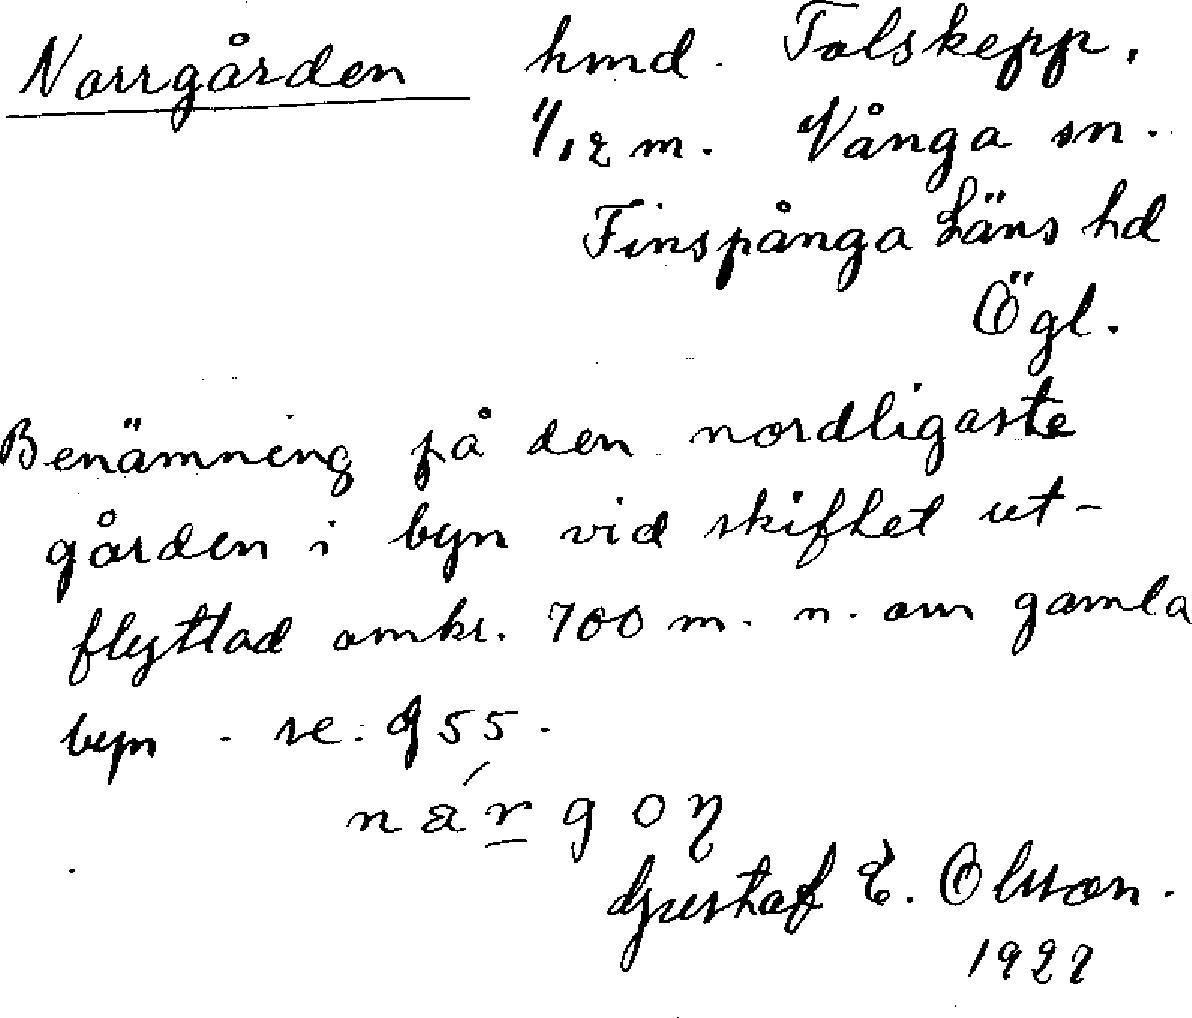 Norrgården hmd. Tolskepp.
1/12 m. Vånga sn.
Finspånga Läns hd
Ögl.
Benämning på den nordligaste
gården i byn vid skiftet ut-
flyttad omkr. 700 m. n. om gamla
byn - se: G 55.
Gustaf E. Olsson.
1927